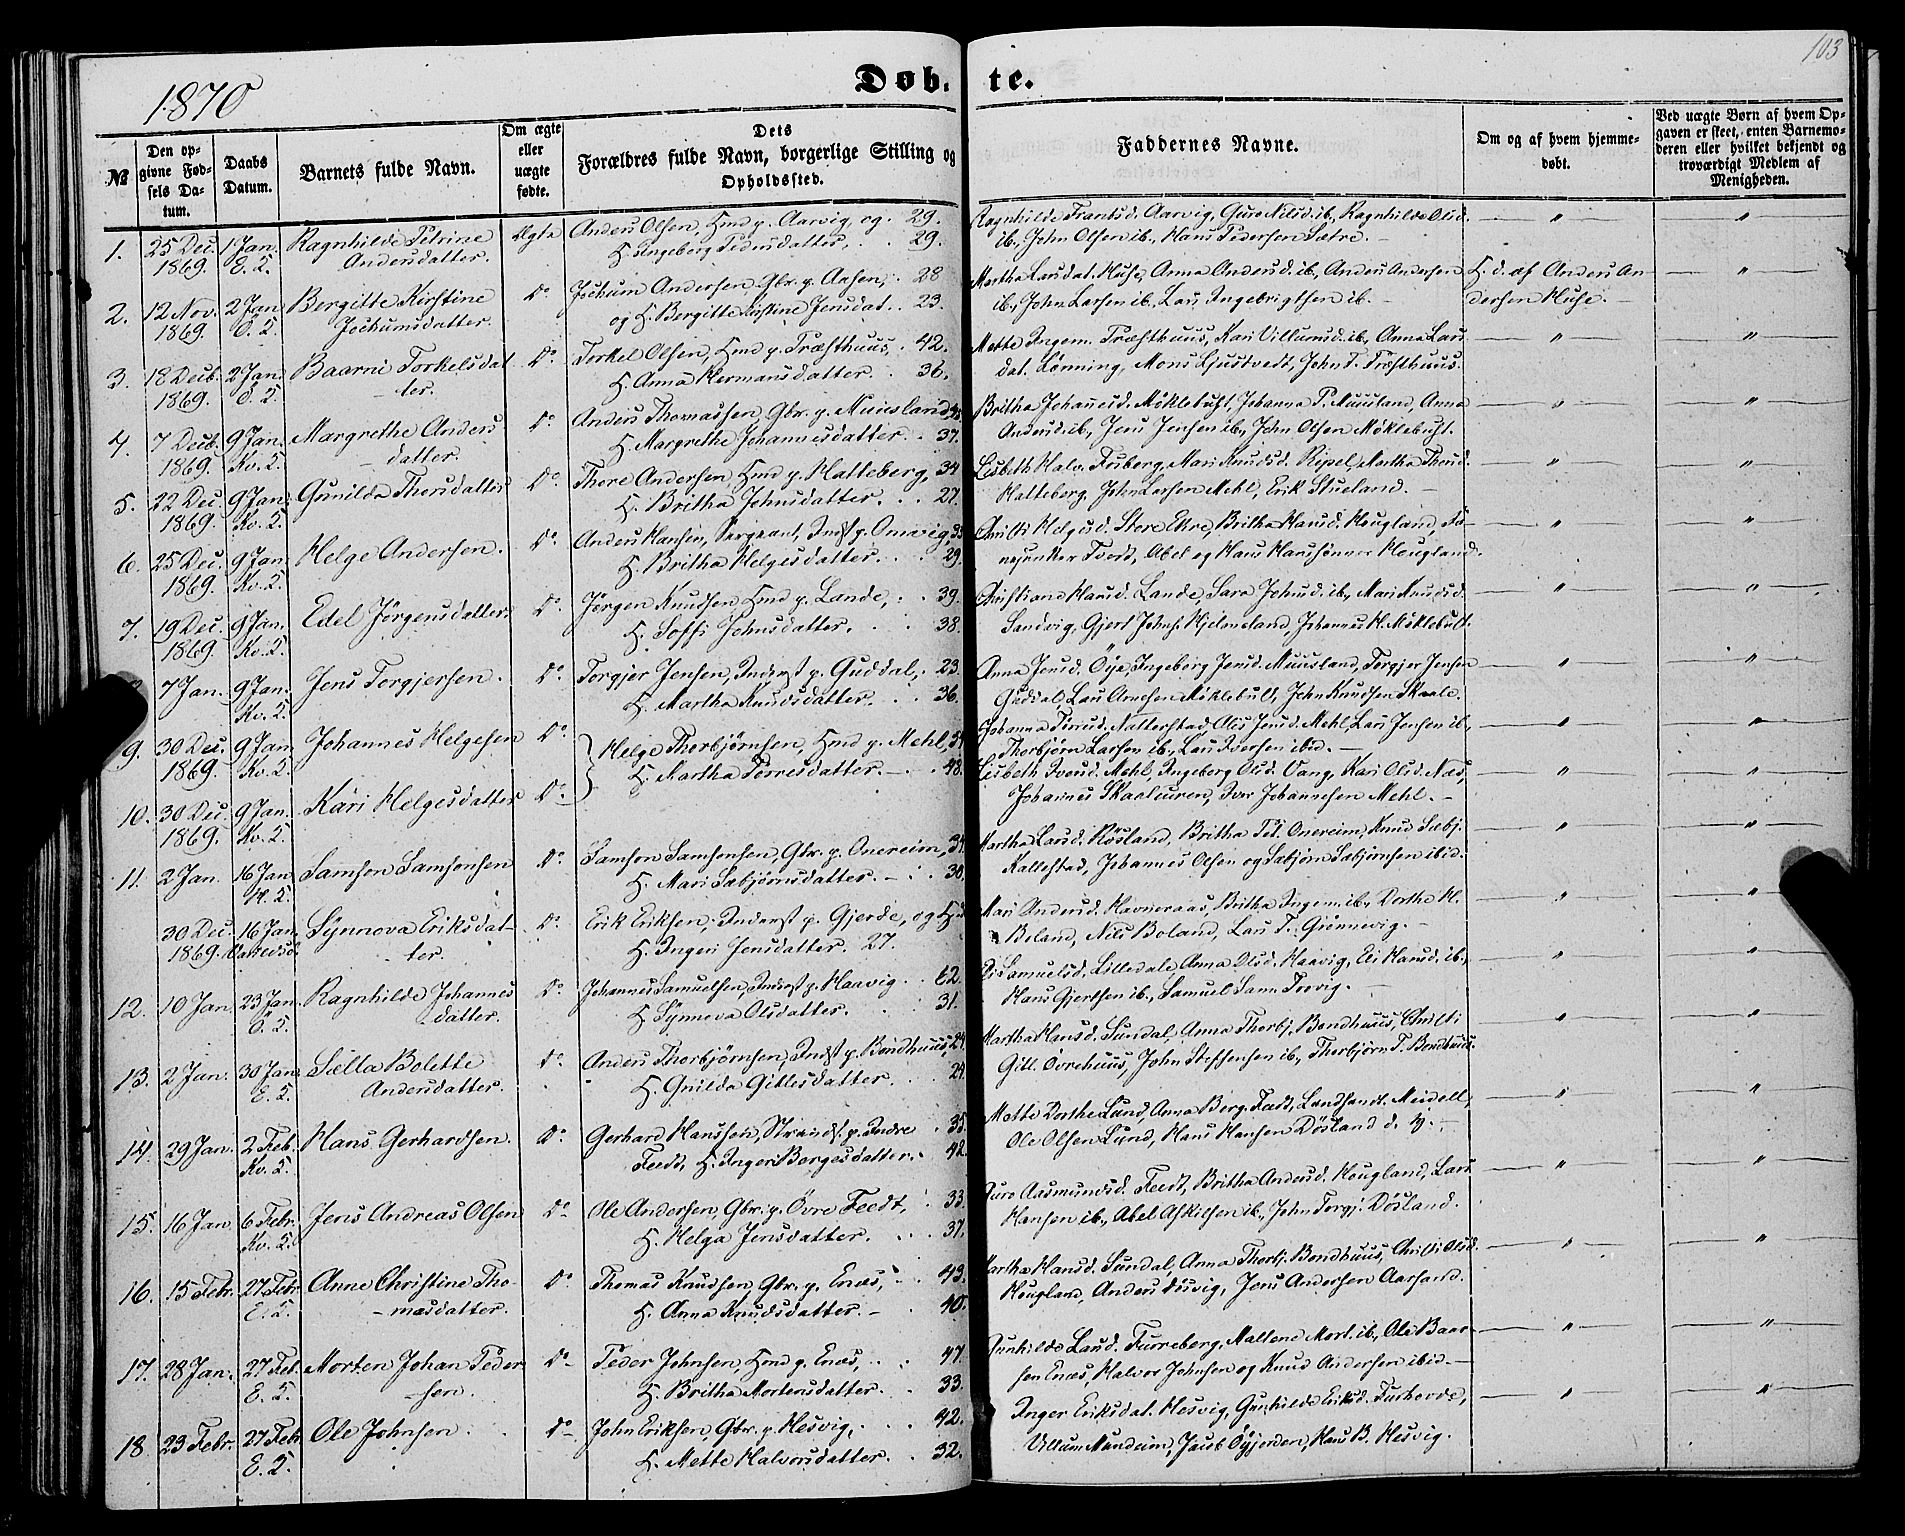 103
1870
Døb. te.
№
Den opgivne Fødsels Datum.
Daabs Datum.
Barnets fulde Navn.
Om ægte eller uægte fødte.
Dets Forældres fulde Navn, borgerlige Stilling og Opholdssted.
Faddernes Navne.
Om og af hvem hjemmedøbt.
Ved uægte Børn af hvem Opgaven er skeet, enten Barnemoderen eller hvilket bekjendt og troværdigt Medlem af Menigheden.
1. 25 Dec. 1869. 1 Jan. E. S. Ragnhilde Petrine Andersdatter. Ægte
Anders Olsen, Hmd p. Aarvig, og 29.
H. Ingeborg Pedersdatter, 29.
Ragnhilde Frantsd. Aarvig, Guro Nilsd. ib., Ragnhilde Olsd.
ib., John Olsen ib., Hans Pedersen Sætre.
2. 12 Nov. 1869. 2 Jan. Ö. S. Bergitte Kirstine Jochumsdatter. Do
Jochum Andersen, Gbr. p. 28
og H. Bergitte Kirstine Jensdat. 23.
Martha Larsdat. Huse, Anna Andersd. ib., Anders Andersen
ib., John Larsen ib., Lars Ingebrigtsen ib.
H. d. af Anders Andersen Huse.
3. 18 Decb. 1869. 2 Jan. Ö. S. Baarni Torkelsdatter. Do
Torkel Olsen, Hmd p. Træsthuus, 42.
H. Anna Hermansdatter. 36.
Mette Ingem. Træsthuus, Kari Villumsd. ib., Anna Lars
dat. Lønning, Mons Ljustvedt, John T. Træsthuus.
4. 7 Decb. 1869. 9 Jan. Kv. S. Margrethe Andersdatter. Do
Anders Thomassen, Gbr. p. Muusland
H. Margrethe Johannesdatter. 37.
Britha Johannesd. Møklebust, Johanna P. Muusland, Anna
Andersd. ib., Jens Jensen ib., John Olsen Møklebust.
5. 22 Dec. 1869. 9 Jan. Kv. S. Gunilda Thorsdatter Do
Thore Andersen, Hmd p. Hatteberg, 34
H. Britha Johnsdatter. 27.
Lisbeth Halv. Mari Knudsd. Ripel, Martha Thorsd.
Hatteberg, John Larsen Mehl, Erik Stueland.
6. 25 Dec. 1869. 9 Jan. Kv. S. Helge Andersen. Do
Anders Hansen, Sergeant, Indst p. Omvig, 33
H. Britha Helgesdatter. 29.
Helgesd. Store Ekre, Britha Hansd. Hougland,
Abel og Hans Hanssønner Hougland.
7. 19 Dec. 1869. 9 Jan. Kv. S. Edel Jørgensdatter. Do
Jørgen Knudsen, Hmd p. Lande, 39.
H. Soffi Johnsdatter. 38.
Christiane Hansd. Lande, Sara Johnsd. ib., Mari Knudsd.
Sandvig, Gjert Johns. Hjelmeland, Johannes H. Møklebust.
7 Jan. 9 Jan. Kv. S. Jens Torgjersen. Do
Torgjer Jensen, Inderst p. Guddal, 23.
H. Martha Knudsdatter. 36.
Anna Jensd. Öye, Ingeborg Jensd. Muusland, Torgjer Jensen
Guddal, Lars Arnesen Møklebust, John Knudsen Skaale.
9. 30 Dec. 1869. 9 Jan. Kv. S. Johannes Helgesen Do
Helge Thorbjørnsen, Hmd p. Mehl,
H. Martha Torresdatter. 48.
Johanna Natterstad, Olis Jensd. Mehl, Lars Jensen ib.,
Thorbjørn Larsen ib., Lars Iversen ibid.
10. 30 Dec. 1869. 9 Jan. Kv. S. Kari Helgesdatter Do
Lisbeth Mehl, Ingeborg Olsd. Vang, Kari Olsd. Næs,
Johannes Skaaleuren, Iver Johannesen Mehl.
11. 2 Jan. 16 Jan. K. S. Samson Samsonsen Do
Samson Samsonsen, Gbr. p. Onereim,
H. Mari Sæbjørnsdatter. 30.
Martha Larsd. Røsland, Britha Onereim, Knud Sæbj.
Kallestad, Johannes Olsen og Sæbjørn Sæbjørnsen ibid.
30 Dec. 1869. 16 Jan. Synnova Eriksdatter. Do
Erik Eriksen, Inderst p. Gjerde, og
H. Ingeri Jensdatter. 27.
Mari Andersd. Havneraas, Britha Ingem. ib., Dorthe H.
Boland, Nils Boland, Lars T. Grønnevig.
12. 10 Jan. 23 Jan. Ö. S. Ragnhilde Johannesdatter. Do
Johannes Samuelsen, Inderst p. Haavig 62.
H. Synneva Olsdatter. 31.
Samuelsd. Lilledale, Anna Olsd. Haavig, Eli Hansd. ib.,
Hans Gjertsen ib., Samuel Sam. Tvevig.
13. 2 Jan. 30 Jan. E. S. Sella Bolette Andersdatter. Do
Anders Thorbjørnsen, Indst p. Bondhuus, 24.
H. Gunilda Gitlesdatter. 24.
Martha Hansd. Sundal, Anna Thorbj. Bondhuus, Christi
Gitl. Övrehuus, John Steffensen ib., Thorbjørn T. Bondhuus.
14. 29 Jan. 2 Feb. Kv. S. Hans Gerhardsen. Do
Gerhard Hanssen, Strands. p. Indre 35.
Feedt, H. Inger Borgesdatter. 42.
Mette Dorthe Lund, Anna Berg. Feedt, Landhandl. Meidell,
Ole Olsen Lund, Hans Hansen Døsland d. y.
15. 16 Jan. 6 Febr. Kv. S. Jens Andreas Olsen Do
Ole Andersen, Gbr. p. Övre Feedt, 33.
H. Helga Jensdatter. 37.
Guro Aasmundsd. Feedt, Britha Andersd. Hougland, Lars
Hansen ib., Abel Askilsen ib., John Torgj. Døsland.
16. 15 Febr. 27 Febr. E. S. Anne Christine Thomasdatter. Do
Thomas Knudsen, Gbr. p. Enæs, 43.
H. Anna Knudsdatter. 40.
Martha Hansd. Sundal, Anna Thorbj. Bondhuus, Christi Olsd.
Hougland, Anders Jens Andersen Aarsand.
17. 28 Jan. 27 Feb. E. S. Morten Johan Pedersen. Do
Peder Johnsen, Hmd p. Enæs, 47.
H. Britha Mortensdatter. 33.
Gunhilde Larsd. Furreberg, Mallene Mort. ib., Ole Baar-
sen Enæs, Halvor Johnsen og Knud Andersen ibid.
18 23 Febr. 27 Feb. E. S. Ole Johnsen. Do
John Eriksen, Gbr. p. Hesvig, 42.
H. Mette Halvorsdatter. 32.
Inger Eriksdat. Hesvig, Gunhilde Eriksd. Furhovde,
Villum Mundeim, Jacob Öyjorden, Hans B. Hesvig.